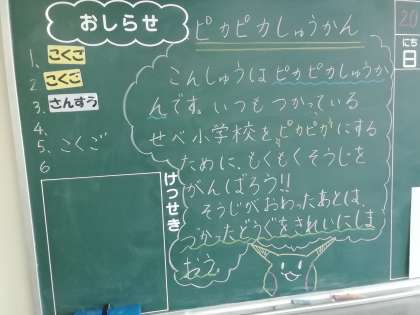 おしらせ
ピカピカしゅうかん
1、こくご
2、こくご
3、さんすう
4、
5、こくご
6
こんしゅうはピカピカしゅうか
んです。いつもつかっている
せべ小学校を、ピカピカにする
ために、もくもくそうじを
がんばろう!!
そうじがおわったあとは、
つかったどうぐをきれいにしま
おう。
けっせき
にち
日